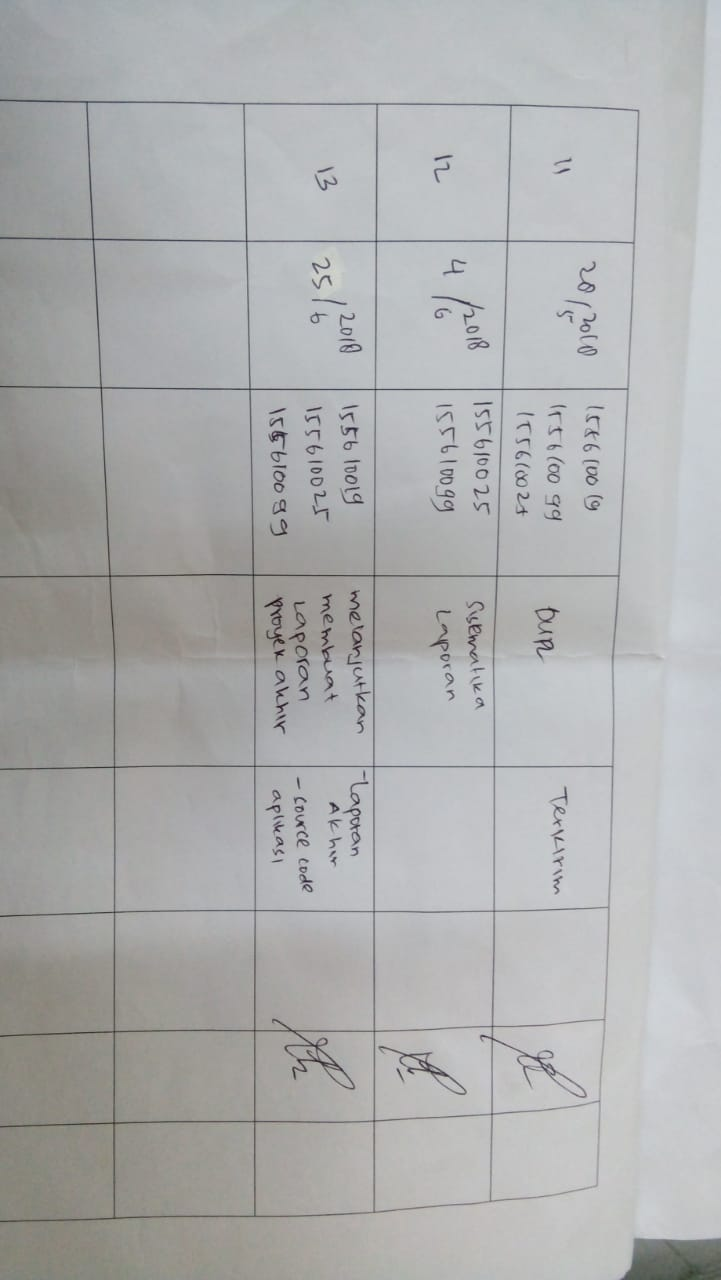 11
28/5 2018
155610019
155610099
155610025
DUPL
Terkirim
12
4/6 2018
155610025
155610099
Sistematika
Laporan
13
25/6 2018
155610019
155610025
155610099
melanjutkan
membuat
Laporan
proyek akhir
- Laporan
Akhir
- source code
aplikasi